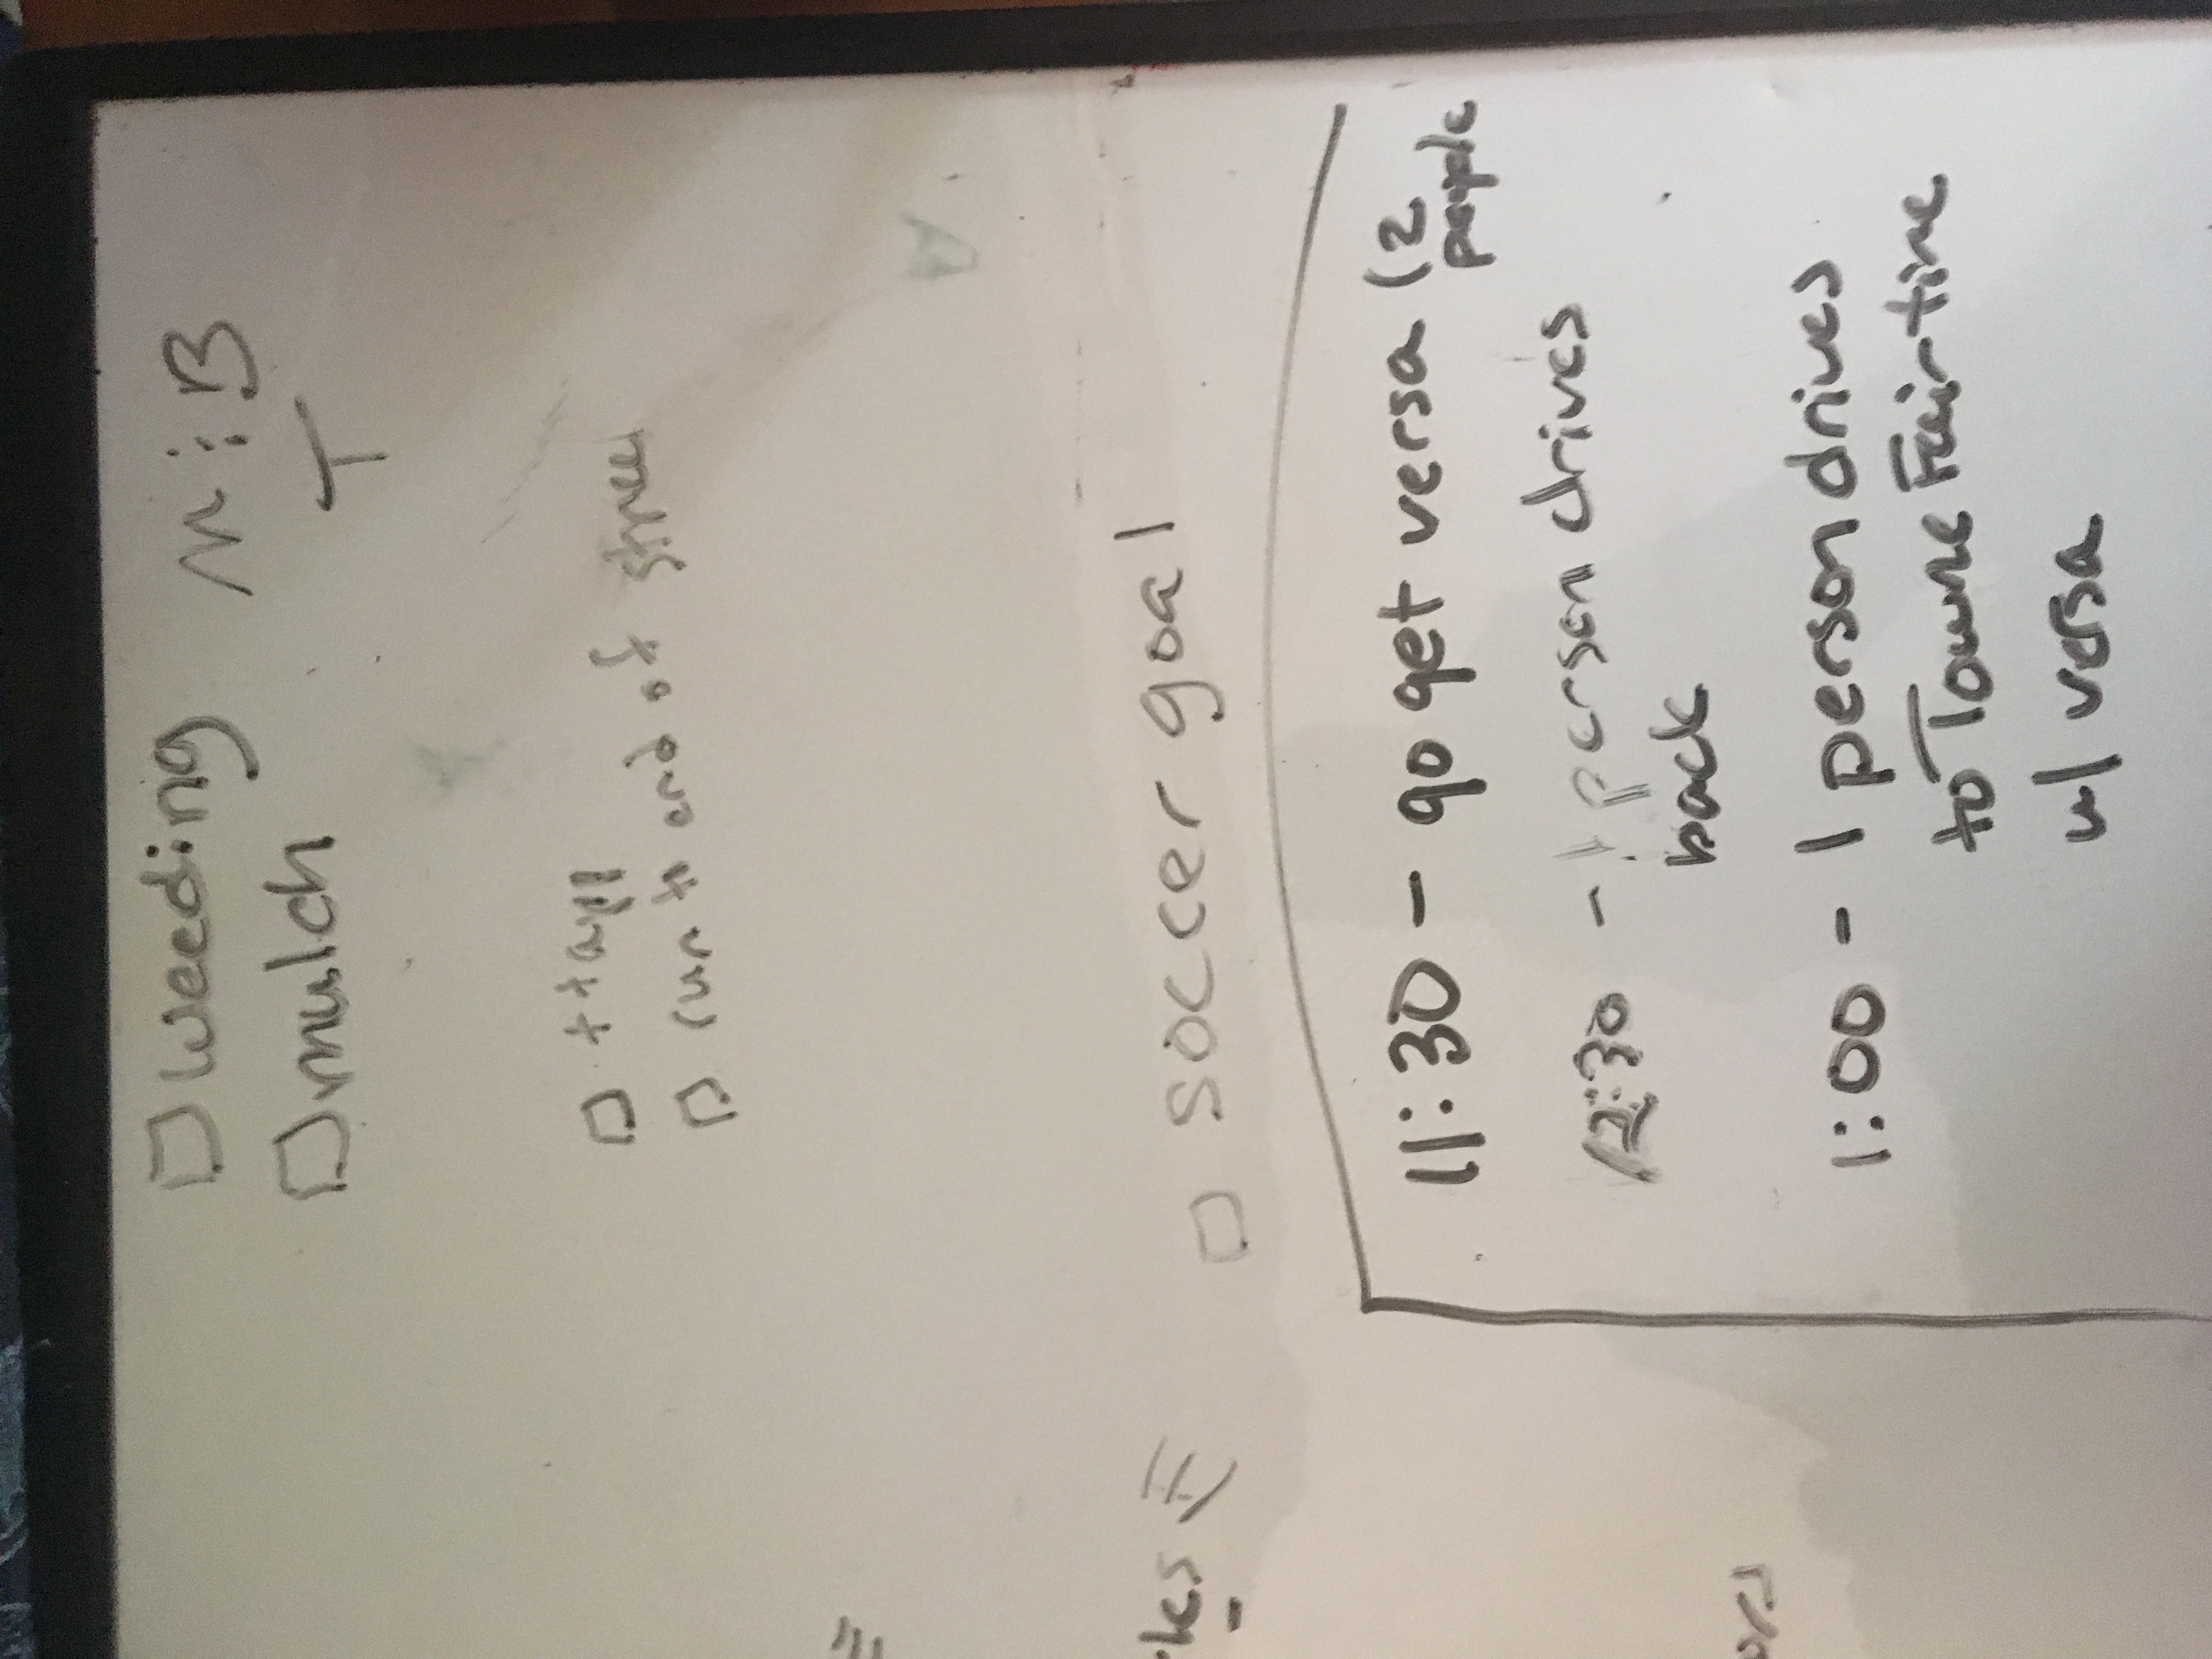 □ weeding
□ mulch
□ run to end of street
□ soccer goal
kes
11:30 - go get versa (2
people
12:30 - 1 person drives
back
1:00 - 1 person drives
to Towne Fair tire
w/ versa
ors